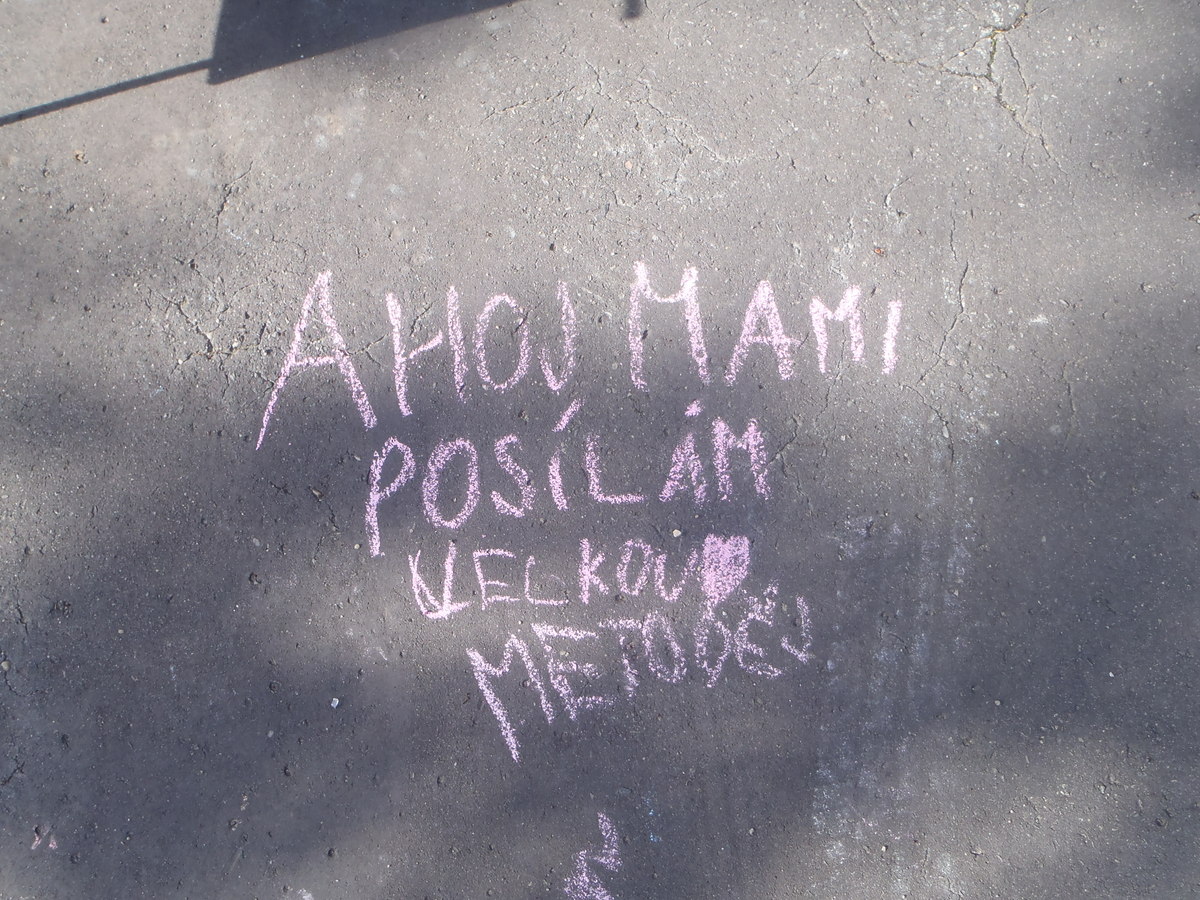 AHOJ MAMI
POSÍLÁM
VELKOU
METODĚJ